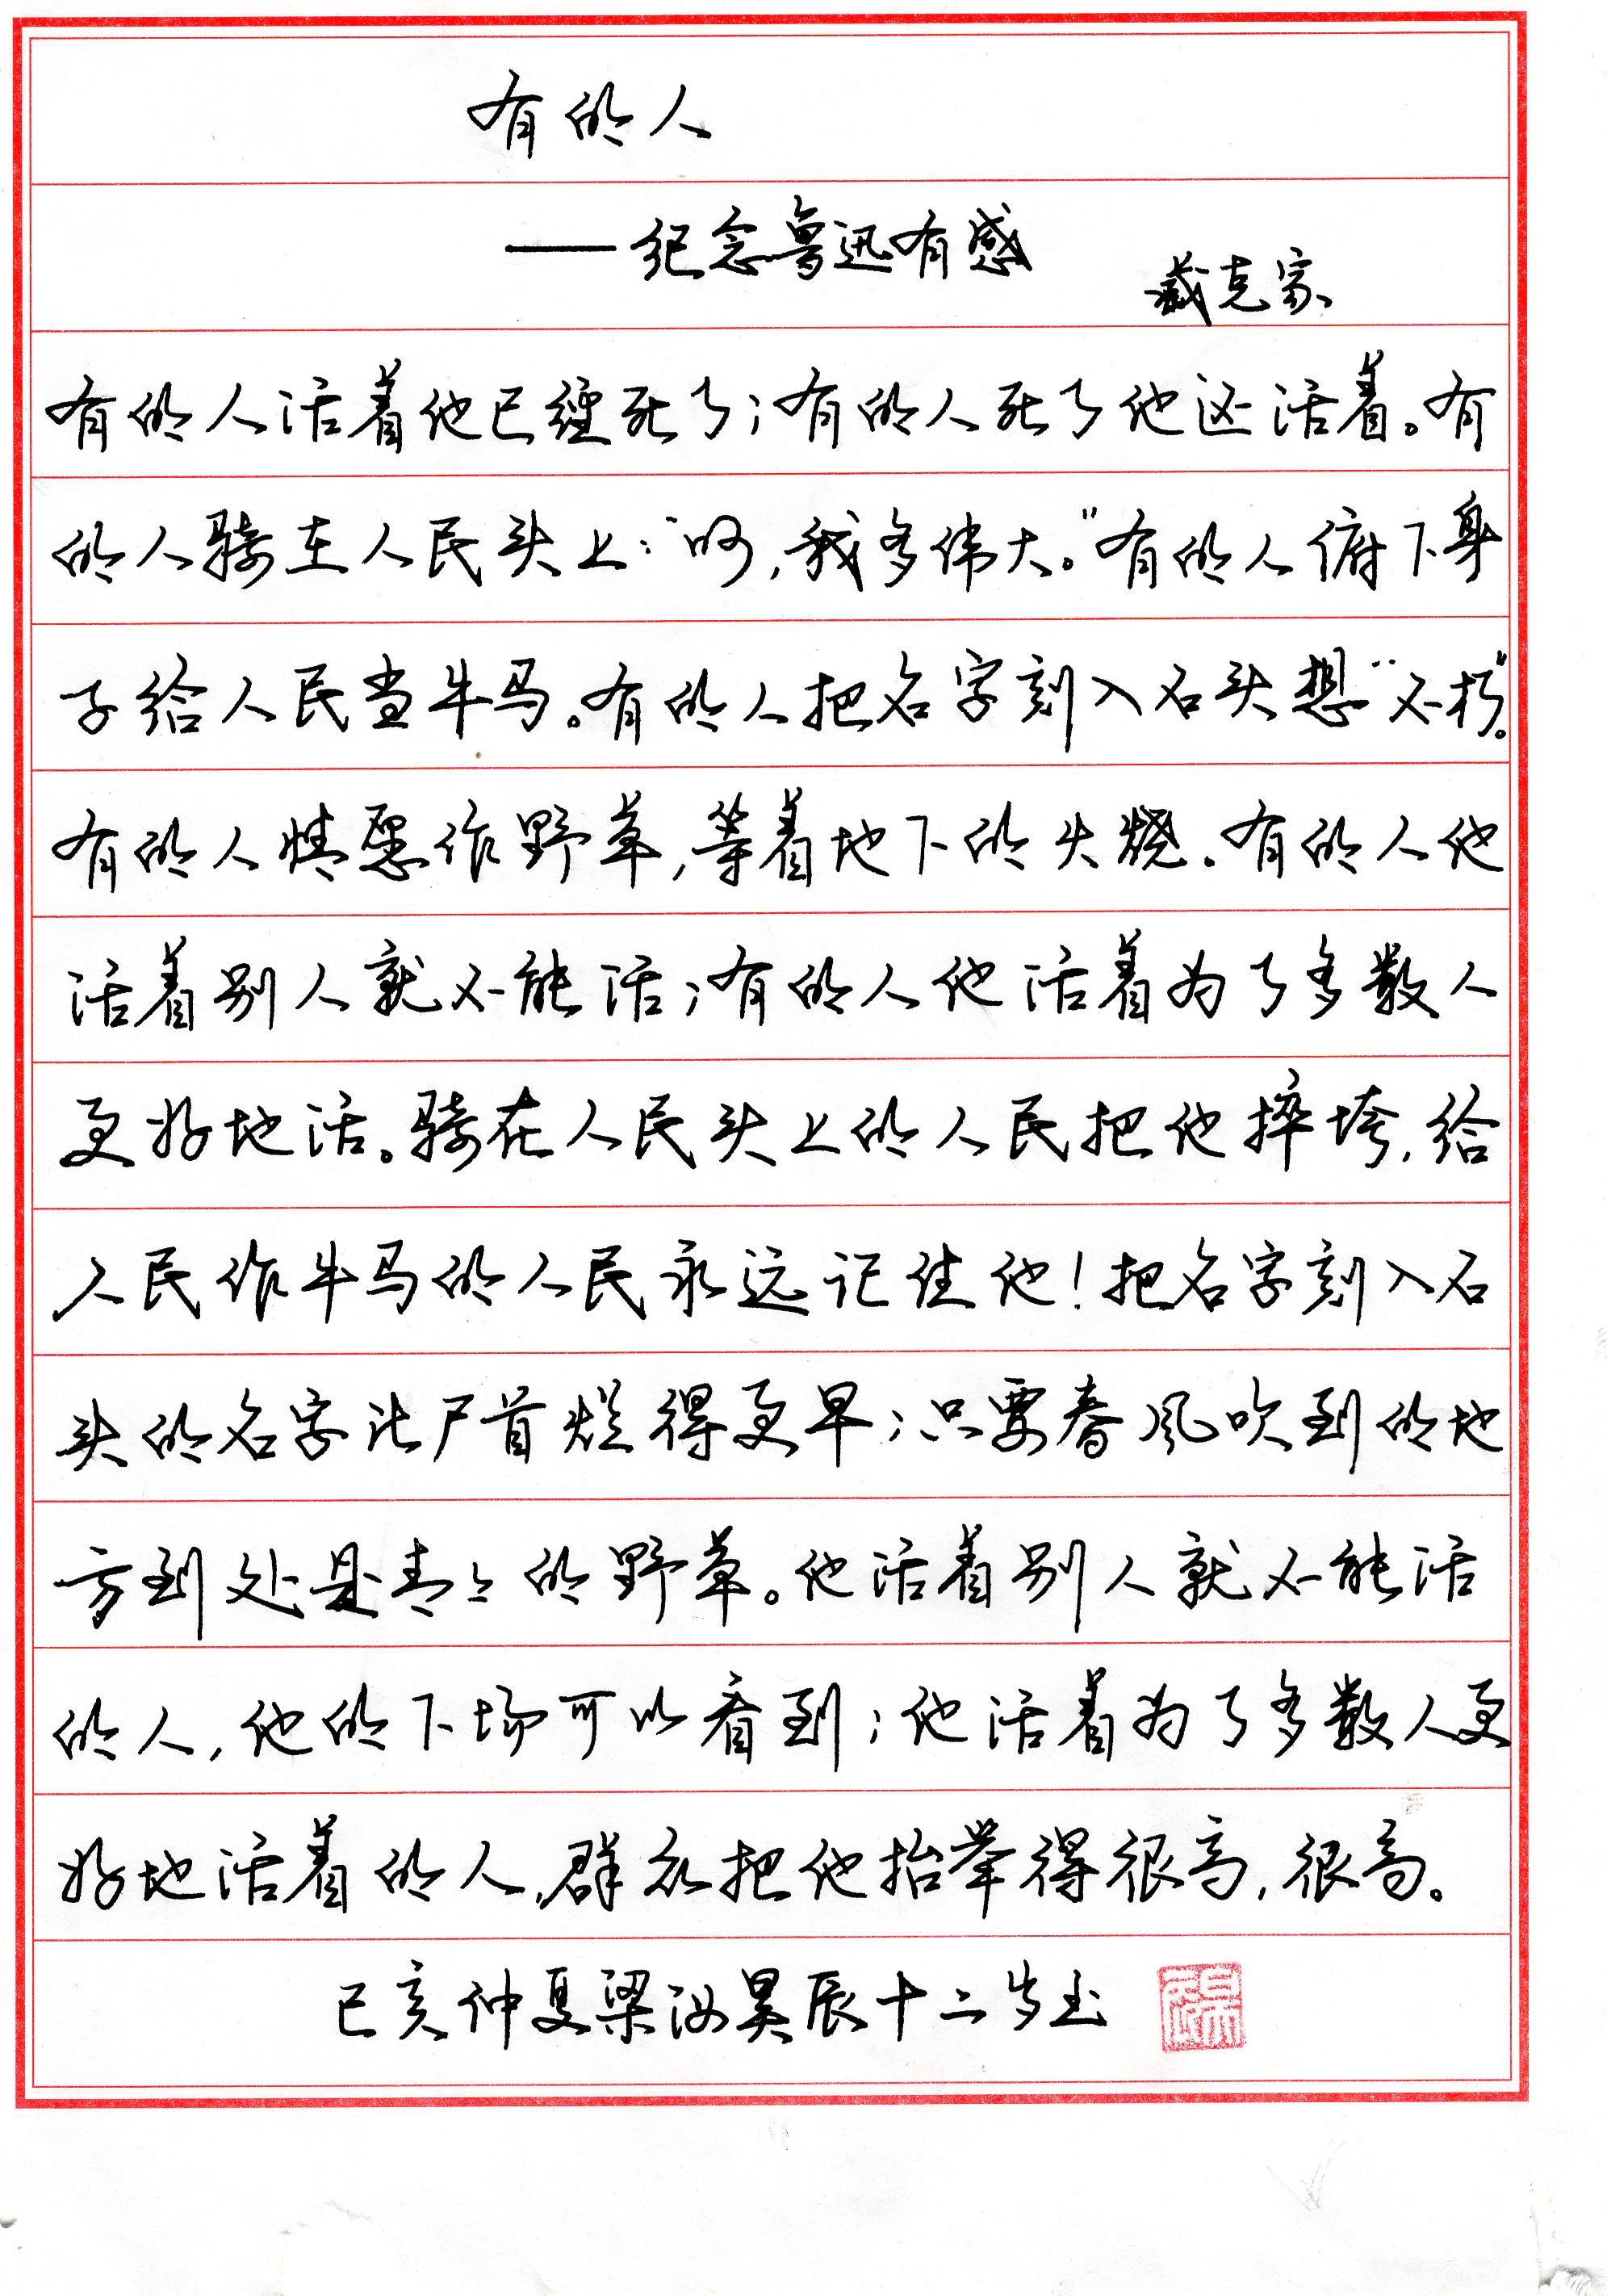 有的人
——纪念鲁迅有感
臧克家
有的人活着他已经死了；有的人死了他还活着。有
的人骑在人民头上：“呵，我多伟大。”有的人俯下身
子给人民当牛马。有的人把名字刻入石头想“不朽”。
有的人情愿作野草，等着地下的火烧。有的人他
活着别人就不能活；有的人他活着为了多数人
更好地活。骑在人民头上的人民把他摔垮，给
人民作牛马的人民永远记住他！把名字刻入石
头的名字比尸首烂得更早；只要春风吹到的地
方到处是青々的野草。他活着别人就不能活
的人，他的下场可以看到；他活着为了多数人更
好地活着的人，群众把他抬举得很高，很高。
己亥仲夏梁汝昊辰十二岁书